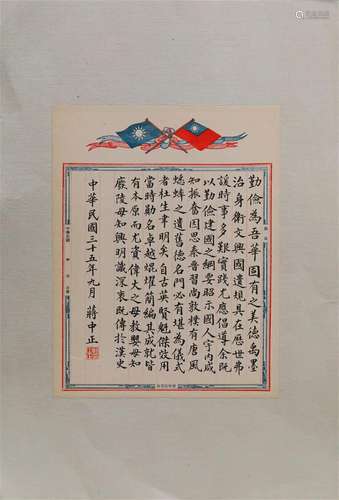 勤儉為吾華固有之美德禹墨
治身衛文興國遺規具在歷世弗
諼時事多艱實踐尤應倡導余既
以勤儉建國之綱要昭示國人宇內咸
知振奮因思秦晉習尚敦樸有唐風
蟋蟀之遺舊德名門必有堪為儀式
者杜生聿明矣自古英賢魁傑效用
當時勛名卓越焜燿簡編其成就皆
有本原而尤賁偉大之母教嬰母知
廢陵母知興明識深衷既傳於漢史
中華民國三十五年九月 蔣中正